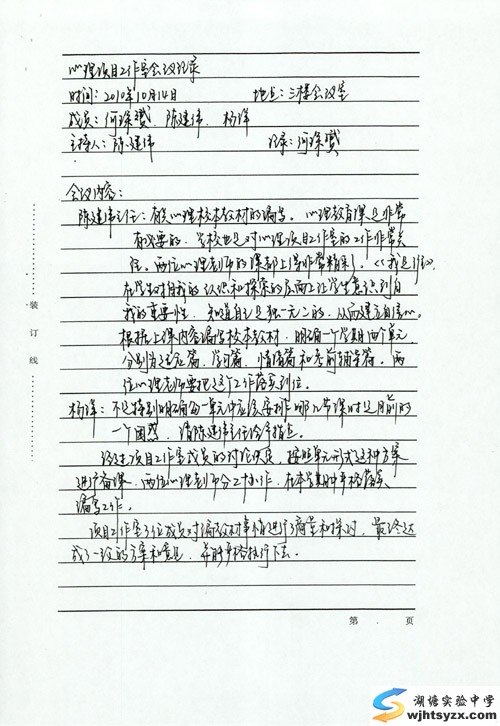 心理项目工作室会议记录
时间：2010年10月14日 地点：三楼会议室
成员：何琛赟、陈建伟、杨锋
主持人：陈建伟 记录：何琛赟
会议内容：
陈建伟主任：有关心理校本教材的编写。心理教育课是非常
有必要的，学校也是对心理项目工作室的工作非常关
注。两位心理老师的课都上得非常精彩，《我是谁》
在学生对自我的认识和探索的层面上让学生意识到自
我的重要性，知道自己是独一无二的，从而建立自信心。
根据上课内容编写校本教材，明确一个学期四个单元，
分别为适应篇、学习篇、情绪篇和考前辅导篇。两
位心理老师要把这个工作落实到位。
杨锋：不过特别明确每一单元中应该安排哪几节课时是目前的
一个困惑，请陈建伟主任给予指点。
经过项目工作室成员的讨论决定，按照单元形式这种方案
进行备课，两位心理老师分工协作，在本学期中严格落实
编写工作。
项目工作室3位成员对编教材事情进行了商量和探讨，最终达
成了一致的方案和意见，并将严格执行下去。
装订线
第 页
湖塘实验中学
wjhtsyzx.com